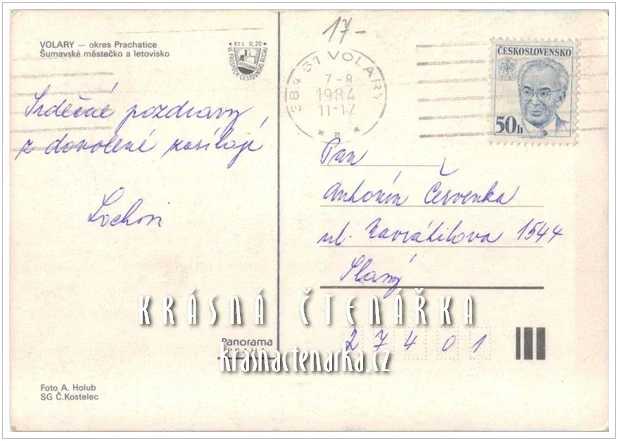 VOLARY – okres Prachatice
Šumavské městečko a letovisko
Kčs 0,20
17-
384 51 VOLARY
7-8
1984
11-12
ČESKOSLOVENSKO
50h
Srdečné pozdravy
z dovolené zasílají
Pan
Antonín Červenka
ul. Navrátilova 1544
Slaný
KRÁSNÁ ČTENÁŘKA
krasnactenarka.cz
Panorama
PRAHA
27401
Foto A. Holub
SG Č.Kostelec